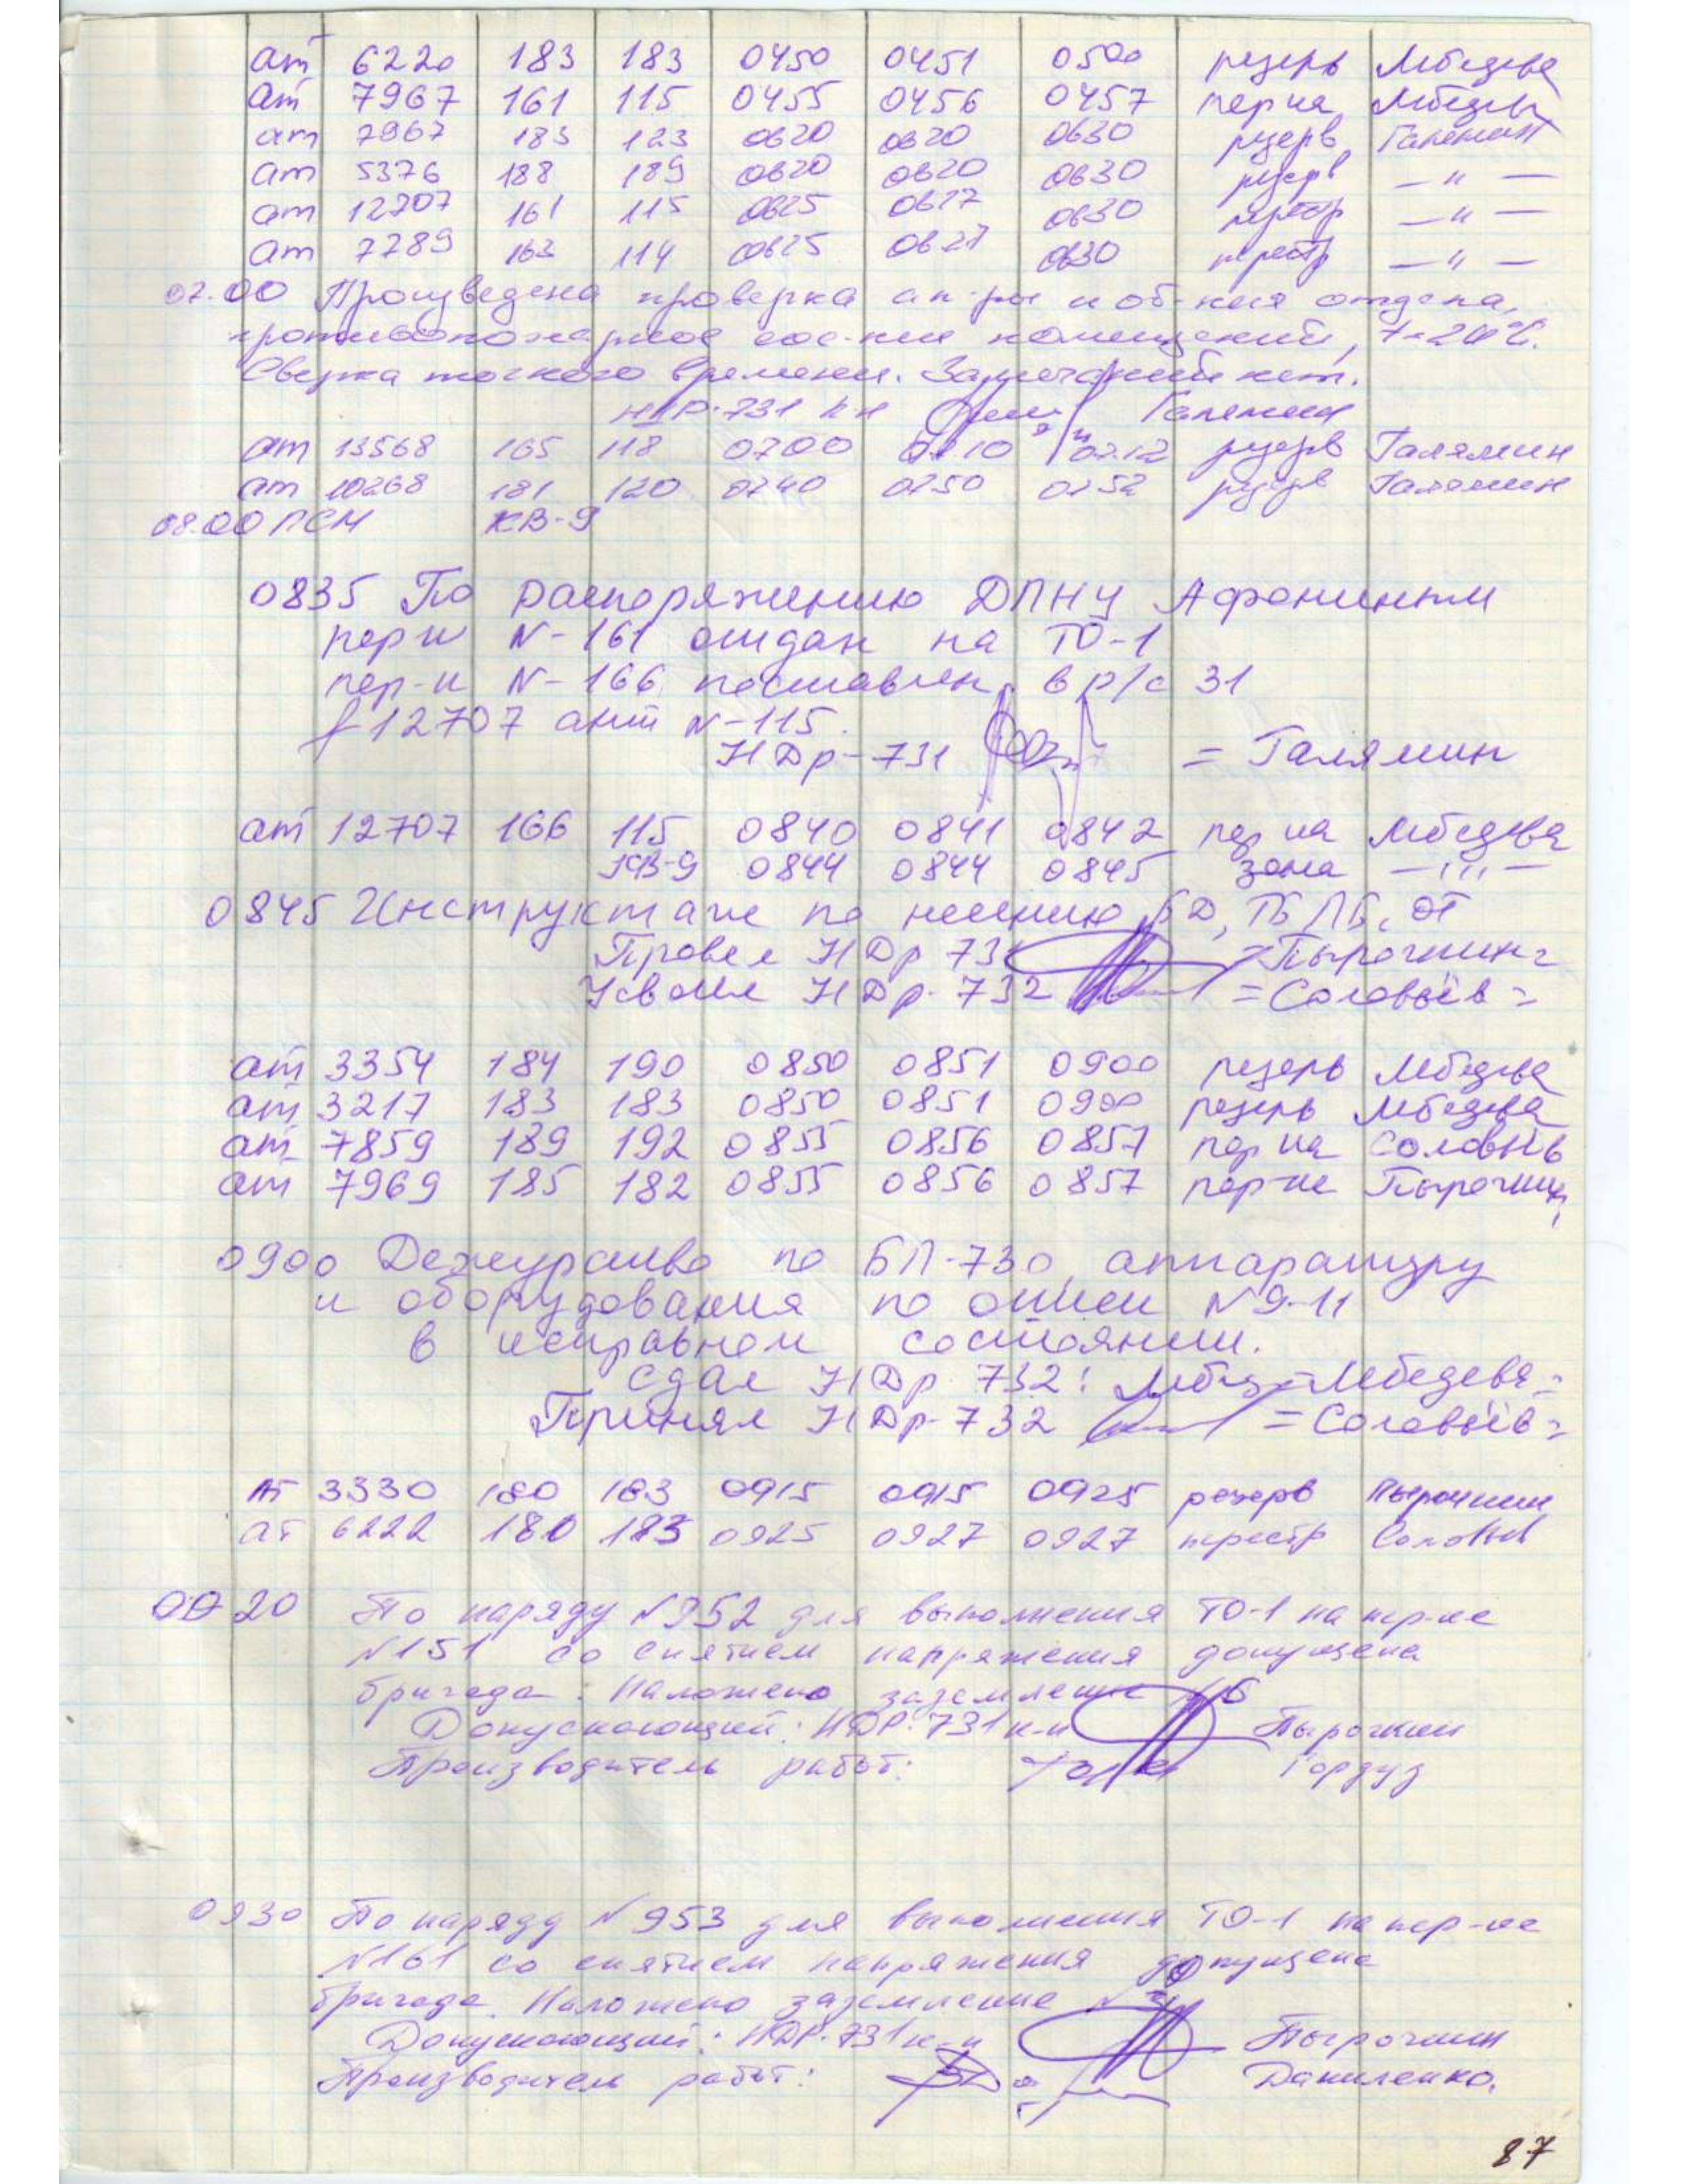 ат 6220 183 183 0450 0451 0500 резерв Лебедева
ат 7967 161 115 0455 0456 0457 пер на Лебедева
ат 7967 183 123 0620 0620 0630 резерв Галямин
ат 5376 188 189 0620 0620 0630 резерв — " —
ат 12707 161 115 0625 0627 0630 перестр — " —
ат 7789 163 114 0625 0627 0630 перестр — " —
07.00 Произведена проверка ап-ры и об-ния отдела,
противопожарное сос-ние помещений,
Сверка точного времени. Замечаний нет.
НДР-731 к-н Галямин
ат 13568 165 118 0700 0710 0712 резерв Галямин
ат 10268 181 120 0740 0750 0752 резерв Галямин
08.00 ПСМ КВ-9
0835 По распоряжению ДПНУ Афониным
пер-к N-161 отдан на ТО-1
пер-к N-166 поставлен в р/с 31
f 12707 ант N-115.
НДр-731 = Галямин
ат 12707 166 115 0840 0841 0842 пер на Лебедева
КВ-9 0844 0844 0845 зона — ''' —
0845 Инструктаж по несению БД, ТБ ПБ, ЭТ
Провел НДр 731 =Пырочкин=
Усвоил НДр-732 =Соловьёв=
ат 3354 184 190 0850 0851 0900 резерв Лебедева
ат 3217 183 183 0850 0851 0900 резерв Лебедева
ат 7859 189 192 0855 0856 0857 пер на Соловьёв
ат 7969 185 182 0855 0856 0857 пер на Пырочкин
0900 Дежурство по БП-730, аппаратуру
и оборудования по описи N 9-11
в исправном состоянии.
Сдал НДр 732: =Лебедева=
Принял НДр-732 =Соловьёв=
АТ 3330 180 183 0915 0915 0925 резерв Пырочкин
АТ 6222 180 183 0925 0927 0927 перестр Соловьёв
0920 По наряду N952 для выполнения ТО-1 на пер-ке
N151 со снятием напряжения допущена
бригада. Наложено заземление N6
Допускающий: НДР-731 к-н Пырочкин
Производитель работ: Гордуз
0930 По наряду N953 для выполнения ТО-1 на пер-ке
N161 со снятием напряжения допущена
бригада. Наложено заземление
Допускающий: НДР-731 к-н Пырочкин
Производитель работ: Даниленко.
87